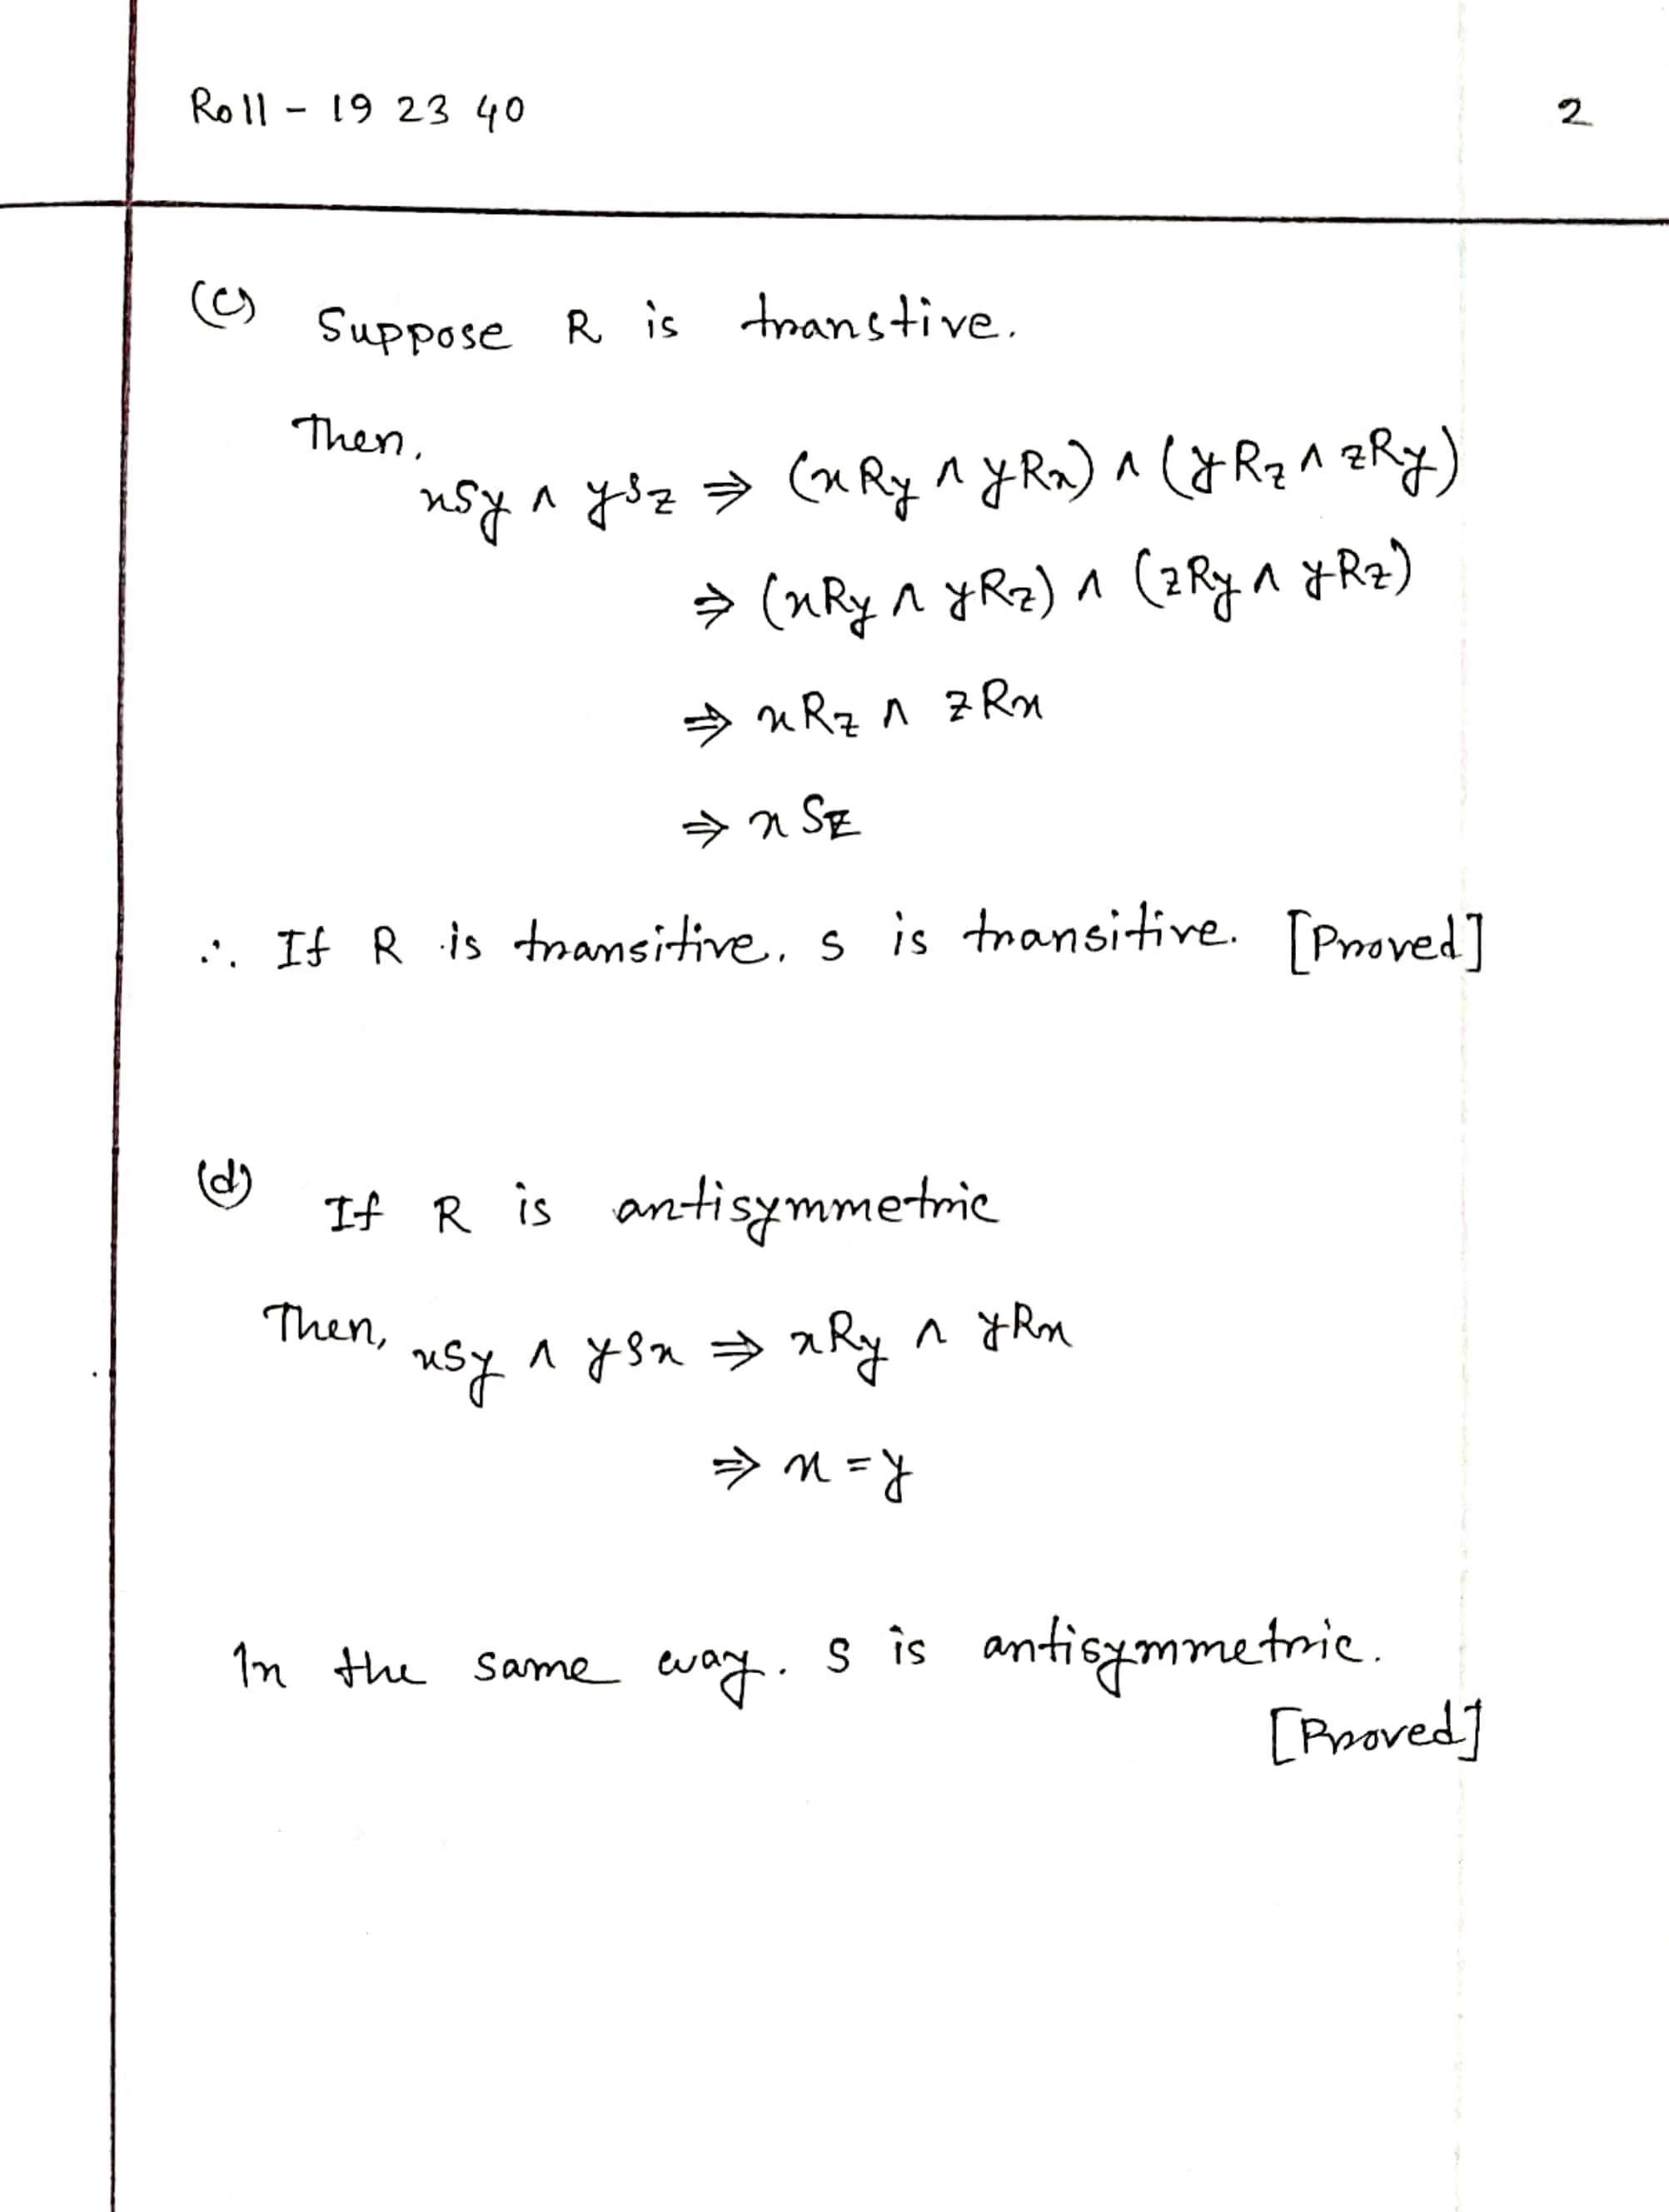 Roll - 19 23 40
2
(c) Suppose R is transtive.
Then,
xSy ∧ ySz ⇒ (xRy ∧ yRx) ∧ (yRz ∧ zRy)
⇒ (xRy ∧ yRz) ∧ (zRy ∧ yRz)
⇒ xRz ∧ zRx
⇒ xSz
∴ If R is transitive, S is transitive. [Proved]
(d) If R is antisymmetric
Then, xSy ∧ ySx ⇒ xRy ∧ yRx
⇒ x = y
In the same way. S is antisymmetric.
[Proved]